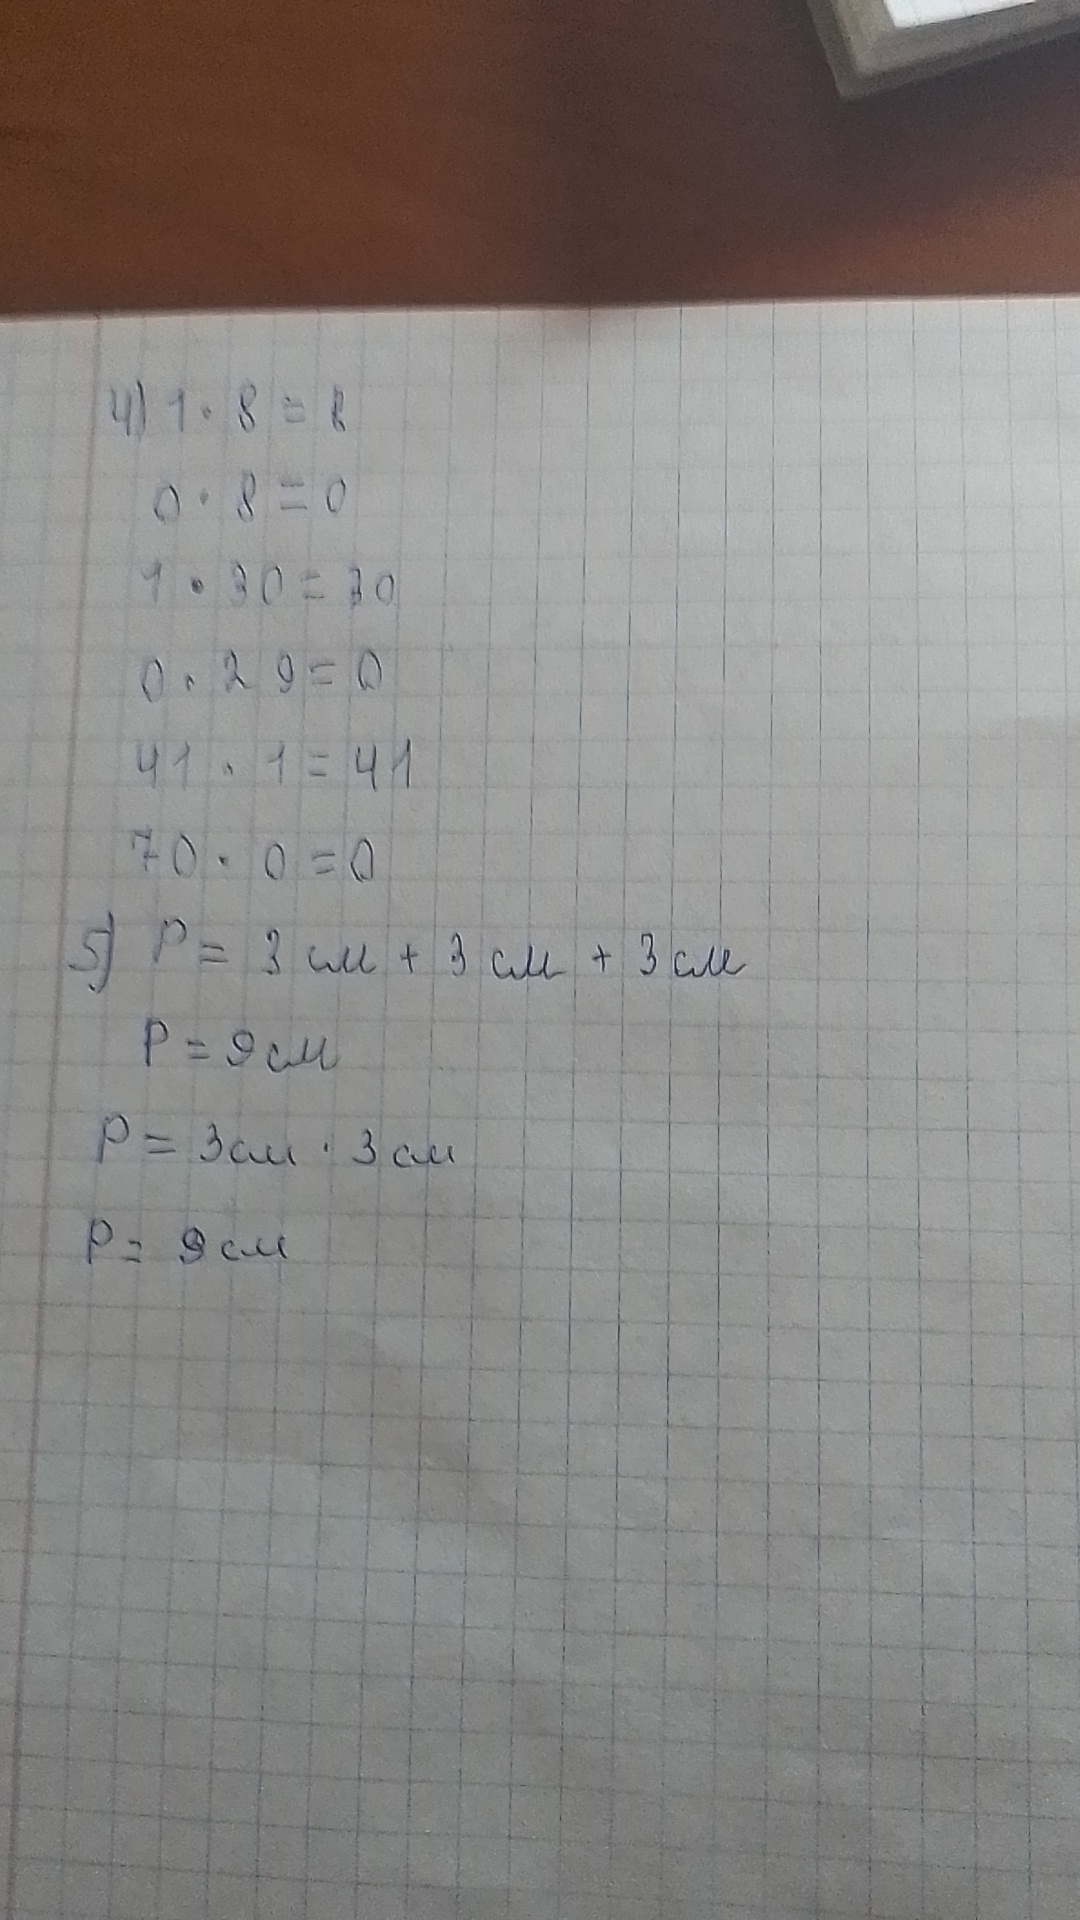 4) 1 · 8 = 8
0 · 8 = 0
1 · 30 = 30
0 · 29 = 0
41 · 1 = 41
70 · 0 = 0
5) P = 3 см + 3 см + 3 см
P = 9 см
P = 3 см · 3 см
P = 9 см